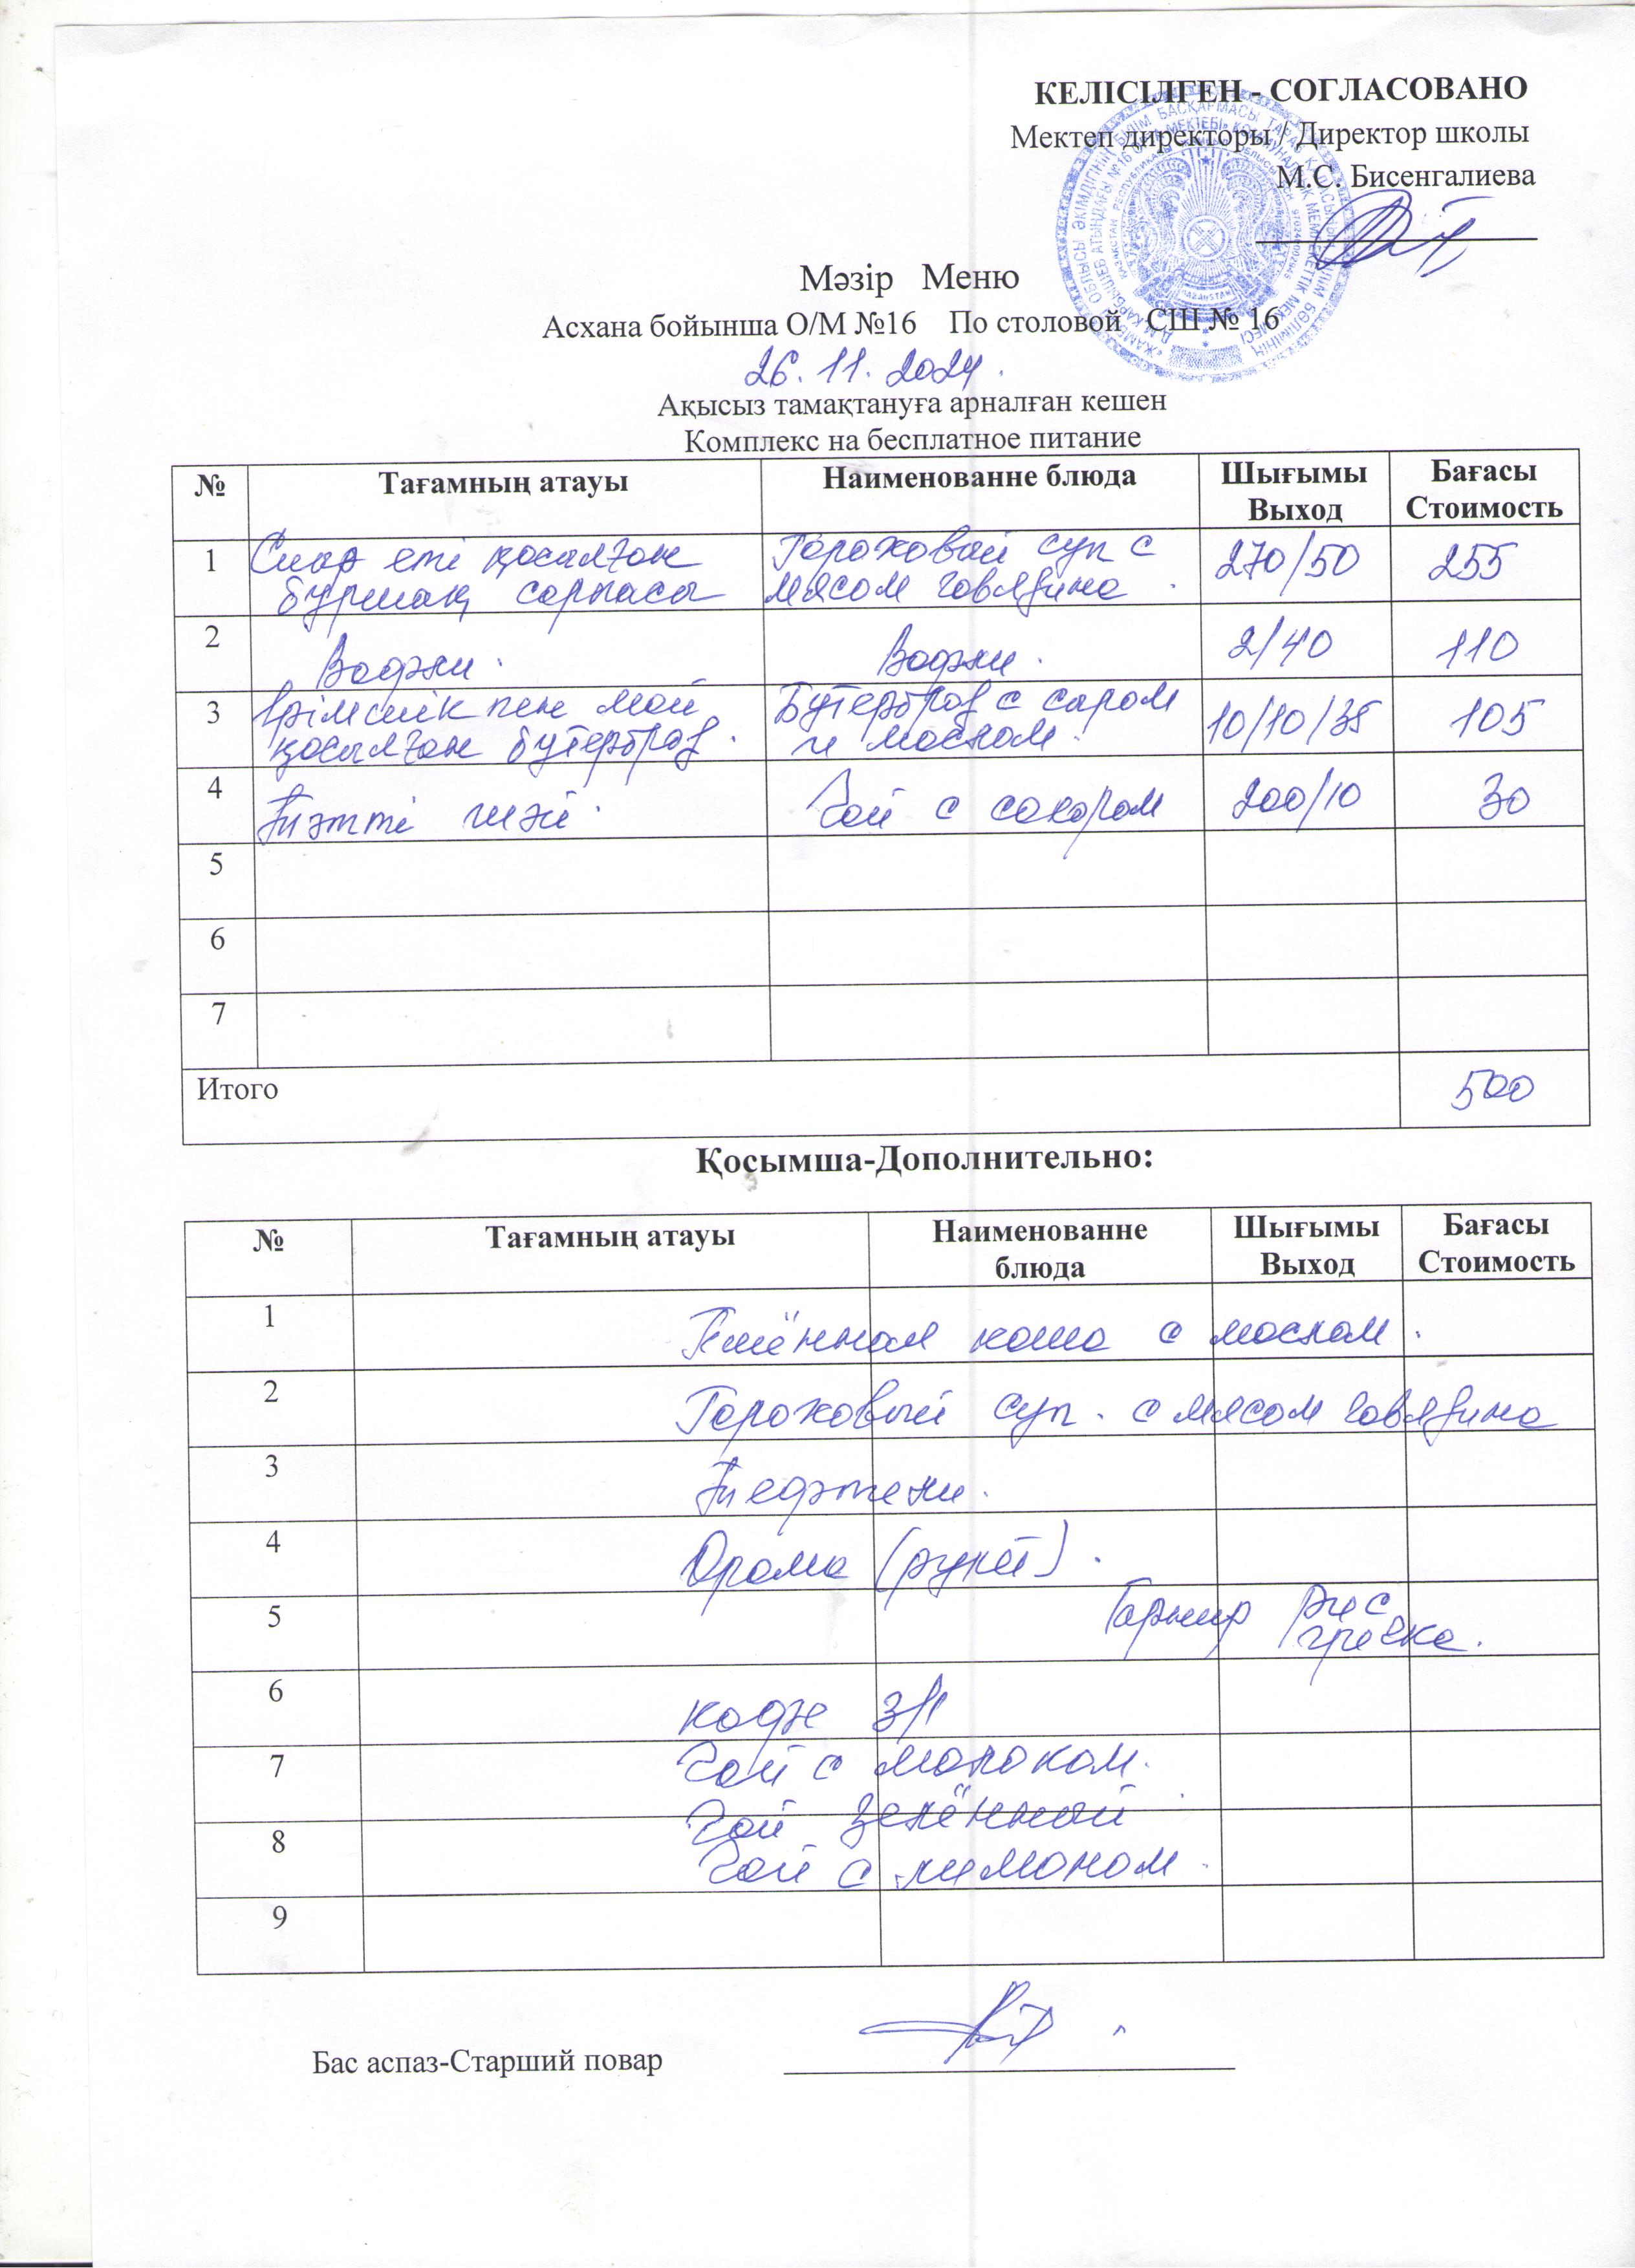 КЕЛІСІЛГЕН - СОГЛАСОВАНО
Мектеп директоры / Директор школы
М.С. Бисенгалиева
Мәзір Меню
Асхана бойынша О/М №16 По столовой СШ № 16
26.11.2024.
Ақысыз тамақтануға арналған кешен
Комплекс на бесплатное питание
№ Тағамның атауы Наименованне блюда Шығымы Выход Бағасы Стоимость
1 Сиыр еті қосылған Гороховый суп с 270/50 255
бұршақ сорпасы мясом говядина.
2 Вафли. Вафли. 2/40 110
3 Ірімшік пен май Бутерброд с сыром 10/10/35 105
қосылған бутерброд. и маслом.
4 Тәтті шәй. Чай с сахаром 200/10 30
5
6
7
Итого 500
Қосымша-Дополнительно:
№ Тағамның атауы Наименованне блюда Шығымы Выход Бағасы Стоимость
1 Пшённая каша с маслом.
2 Гороховый суп. с мясом говядина
3 Тефтели.
4 Орама (рулет).
5 Гарнир рис
гречка.
6 Кофе 3/1
7 Чай с молоком.
Чай зелённый
8 Чай с лимоном.
9
Бас аспаз-Старший повар